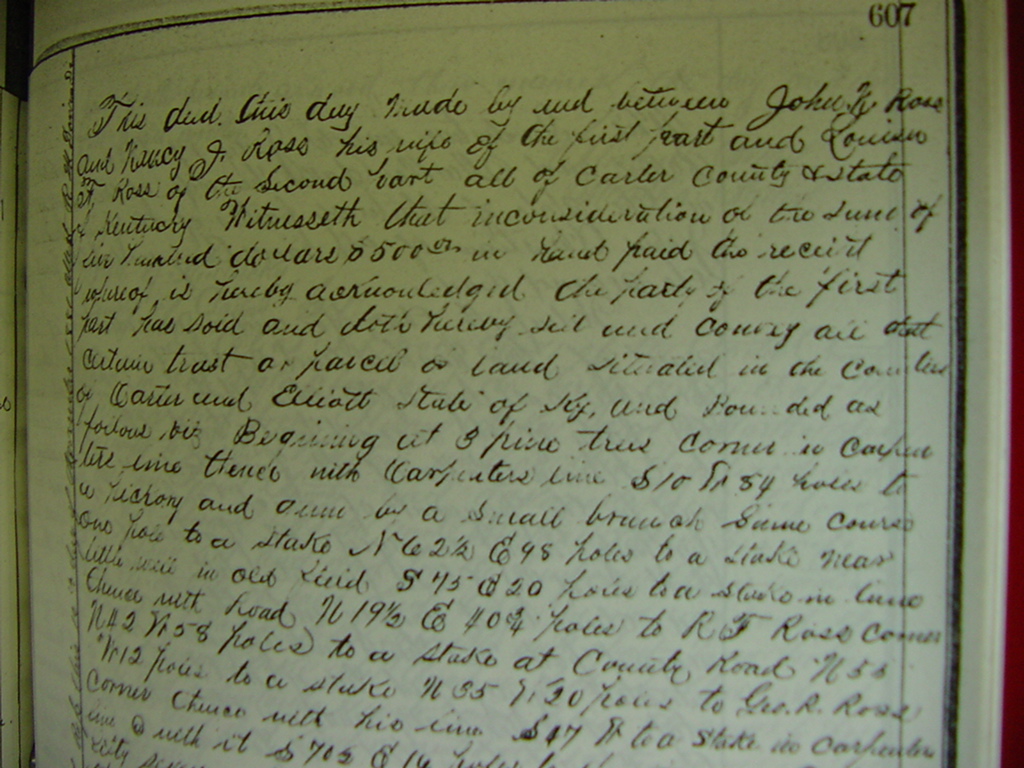 607
This deed this day made by and between John W Ross
and Nancy J. Ross his wife of the first part and Louisa
F. Ross of the Second part all of Carter County & State
of Kentucky Witnesseth that inconsideration of the sum of
five hundred dollars $500 in hand paid the receipt
whereof is hereby acknowledged the party of the first
part has sold and doth hereby sell and convey all that
certain tract or parcel of land situated in the Counties
of Carter and Elliott State of Ky, and Bounded as
follows viz Begining at 3 pine trees corner in Carpen
ters line thence with Carpenters line S 10 W 84 poles to
a hickory and gum by a small branch Same course
one pole to a stake N 62½ E 98 poles to a stake near
in old field S 75 E 20 poles to a stake in lane
thence with Road N 19½ E 40¾ poles to R F Ross corner
N42 W 58 poles to a stake at County Road N 55
W 12 poles to a stake N 35 W 20 poles to Geo. R. Ross
corner thence with his line S 47 W to a stake in carpenters
line & with it S 70½ E 14